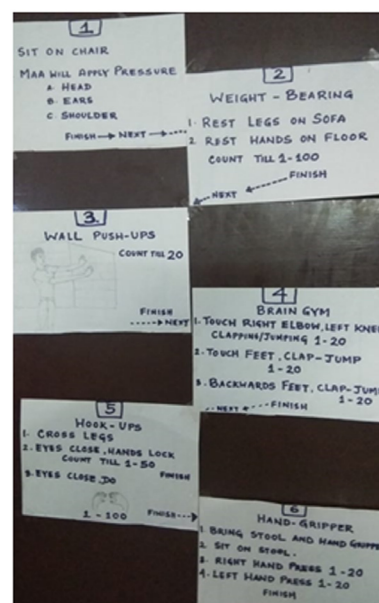 1
SIT ON CHAIR
MAA WILL APPLY PRESSURE
A. HEAD
B. EARS
C. SHOULDER
FINISH → NEXT
2
WEIGHT - BEARING
1. REST LEGS ON SOFA
2 REST HANDS ON FLOOR
COUNT TILL 1-100
FINISH
NEXT
3.
WALL PUSH-UPS
COUNT TILL 20
FINISH
NEXT
4
BRAIN GYM
1. TOUCH RIGHT ELBOW, LEFT KNEE
CLAPPING/JUMPING 1-20
2. TOUCH FEET, CLAP-JUMP
1-20
3. BACKWARDS FEET, CLAP-JUM
1-20
FINISH
NEXT
5
HOOK-UPS
1. CROSS LEGS
2. EYES CLOSE, HANDS LOCK
COUNT TILL 1-50
FINISH
3. EYES CLOSE, DO
1 - 100 FINISH
6
HAND-GRIPPER
1. BRING STOOL AND HAND GRIPPE
2. SIT ON STOOL.
3. RIGHT HAND PRESS 1-20
4. LEFT HAND PRESS 1-20
FINISH